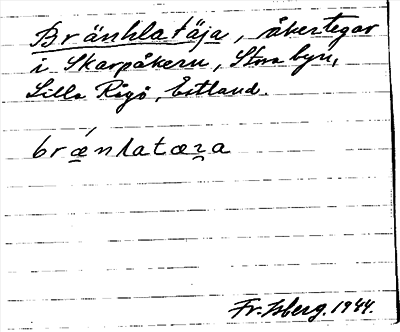 Bränhlatäja, åkertegar
i Skarpåkern, Stora byn,
Lilla Rågö, Estland.
brǽnlatæɀa
Fr. Isberg. 1944.